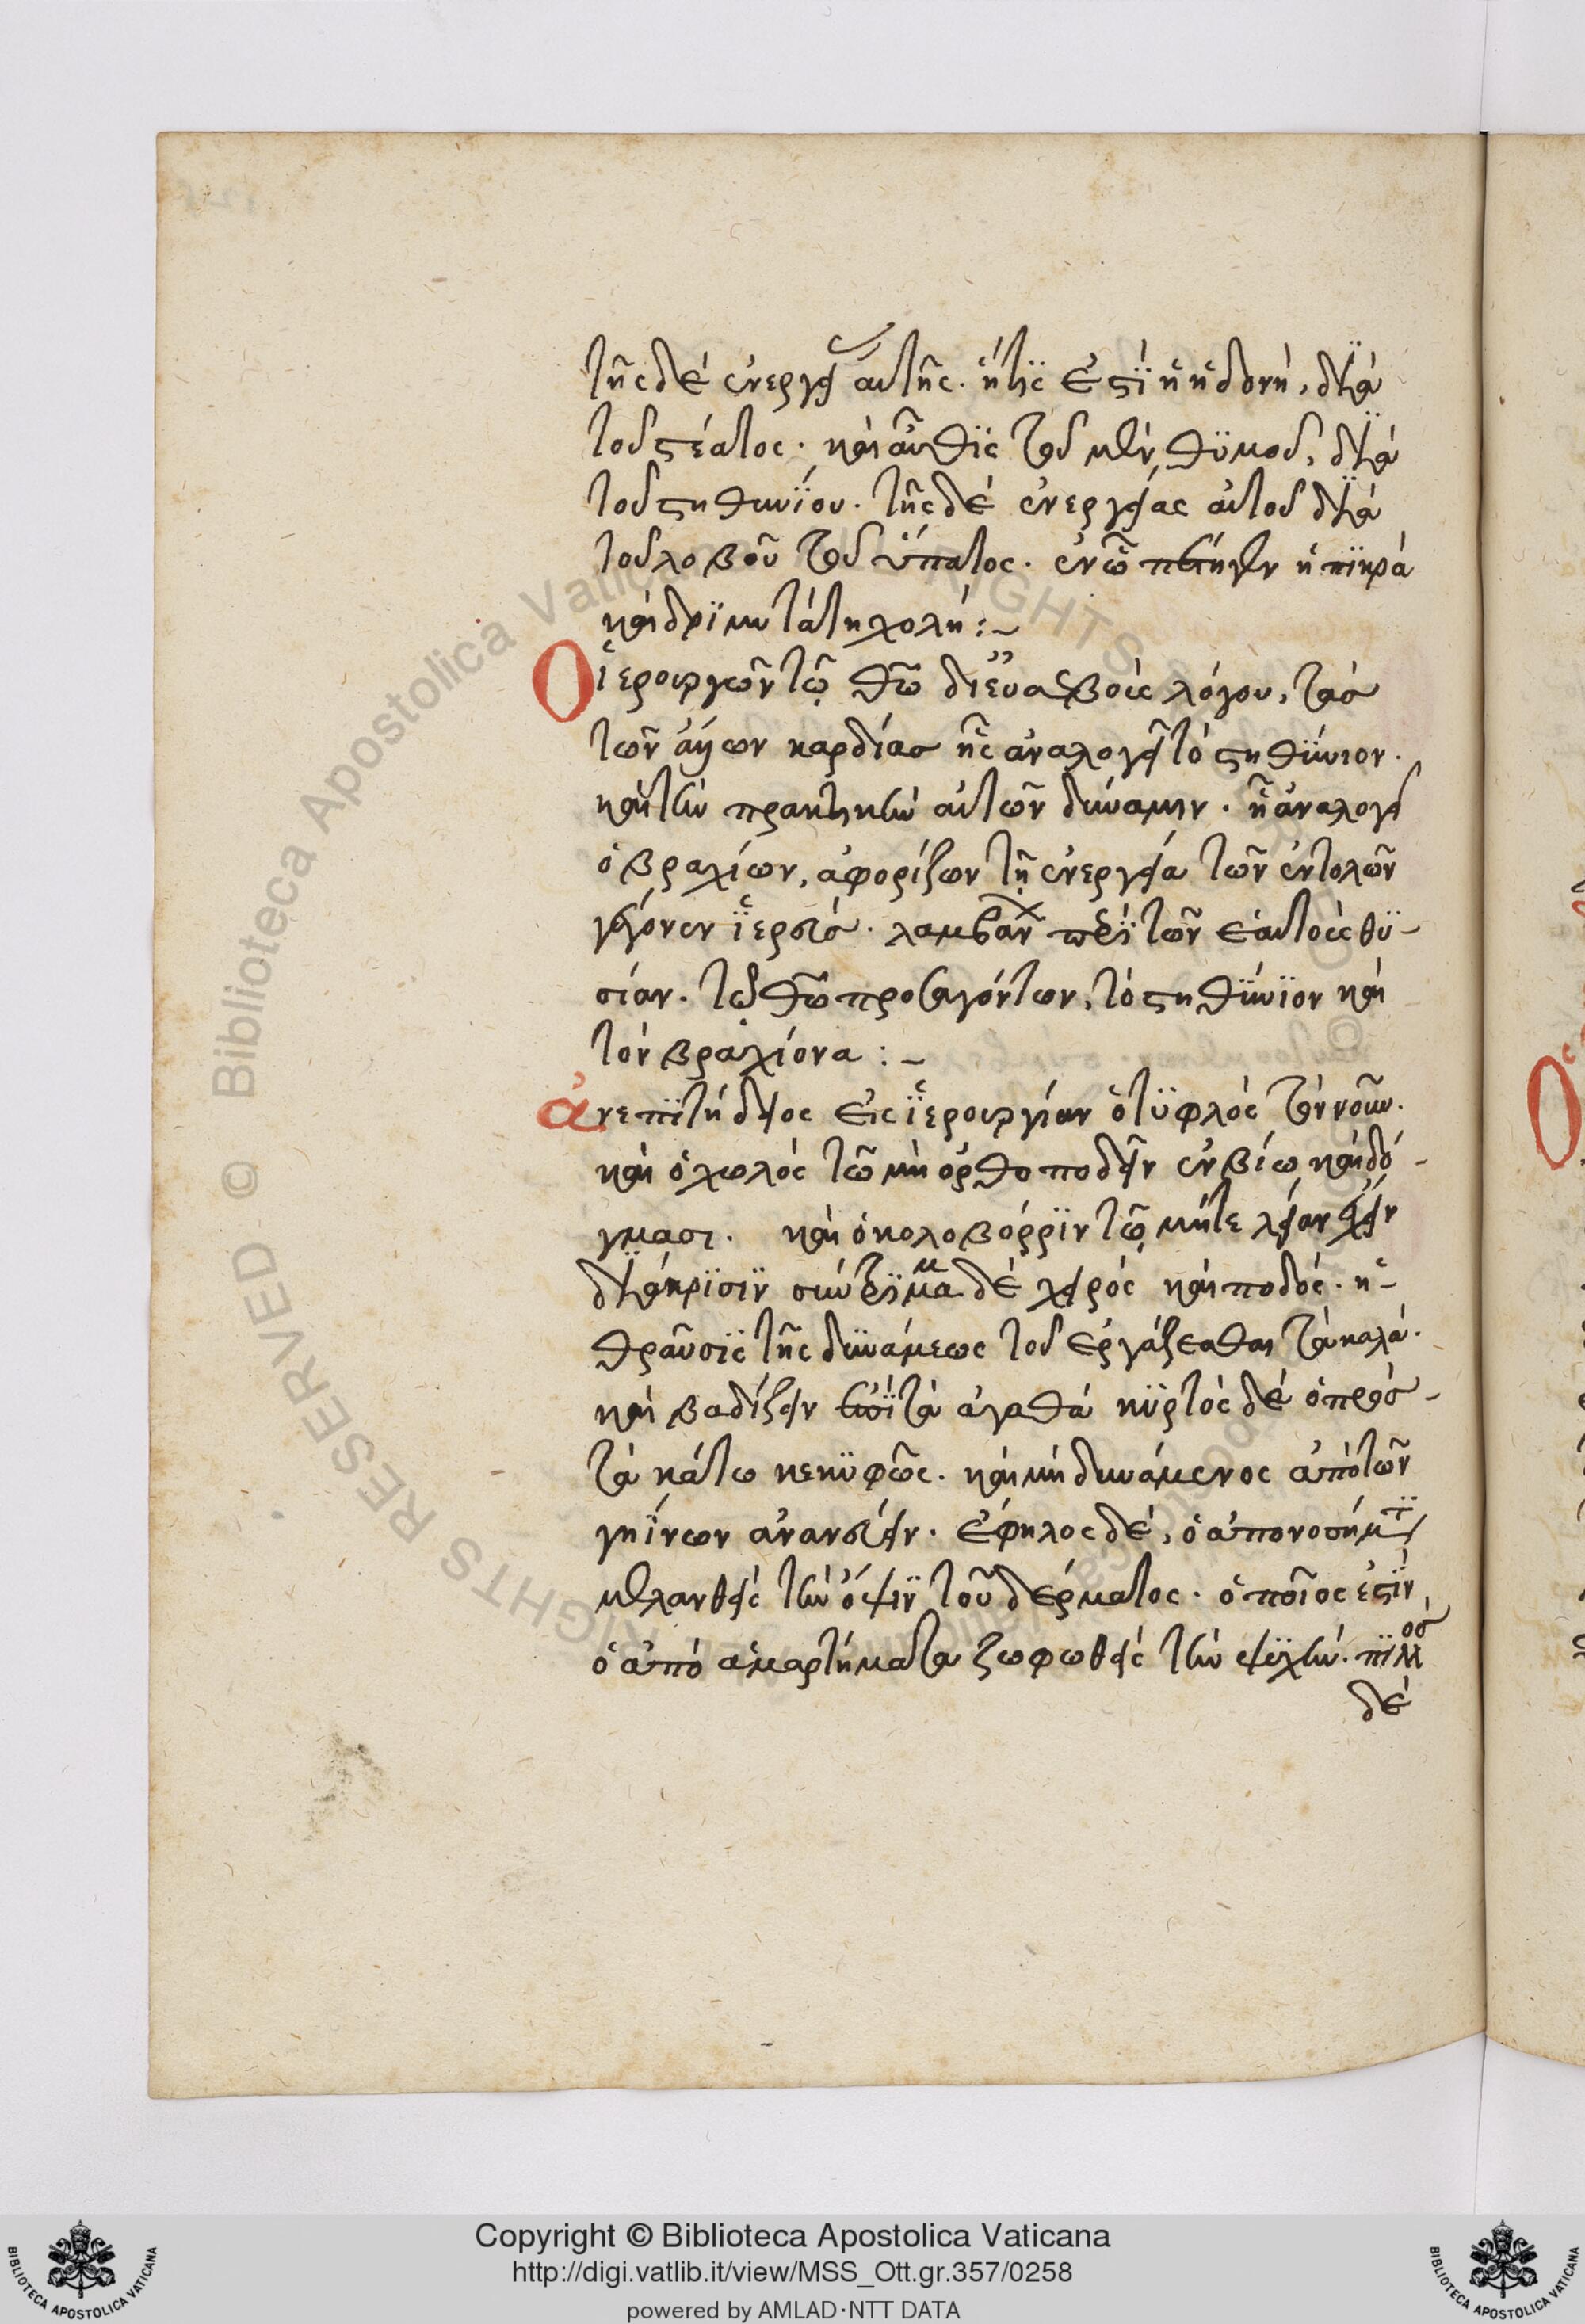 τῆς δὲ ἐνεργείας αὐτῆς. ἥτις ἐστὶ ἡ ἡδονὴ, διὰ
τοῦ στέατος. καὶ αὖθις τοῦ μὲν θϋμοῦ, διὰ
τοῦ στηθυνΐου. τῆς δὲ ἐνεργείας αὐτοῦ διὰ
τοῦ λοβοῦ τοῦ ὕπατος. ἐν ᾧ πέπηγεν ἡ πϊκρὰ
καὶ δρϊμυτάτη χολή :~
Ὁ ἱερουργῶν τῷ θεῷ δι εὐσεβοῦς λόγου, τὰς
τῶν ἁγίων καρδίας ἧς ἀναλογεῖ τὸ στηθΰνιον.
καὶ τὴν πρακτικὴν αὐτῶν δύναμιν. ᾗ ἀναλογεῖ
ὁ βραχίων, ἀφορίζων τῇ ἐνεργείᾳ τῶν ἐντολῶν
γέγονεν ἱερεὺς. λαμβάνων παρὰ τῶν ἑαυτοὺς θϋ-
σίαν. τῷ θεῷ προσαγόντων, τὸ στηθΰνϊον καὶ
τὸν βραχίονα :~
ἀνεπϊτήδειος εἰς ἱερουργίαν ὁ τϋφλὸς τὸν νοῦν.
καὶ ὁ χωλὸς τῷ μὴ ὀρθοποδεῖν ἐν βίῳ καὶ δό-
γμασι. καὶ ὁ κολοβόρρϊν τῷ μήτε λείαν ἔχειν
διάκρϊσϊν σύντρϊμμα δὲ χειρὸς καὶ ποδός. ἡ-
θραῦσϊς τῆς δϋνάμεως τοῦ ἐργάζεσθαι τὰ καλά.
καὶ βαδίζειν ἐπὶ τὰ ἀγαθά κϋρτὸς δὲ ὁ πρὸς-
τὰ κάτω κεκϋφῶς. καὶ μὴ δυνάμενος ἀπὸ τῶν
γηΐνων ἀνανεύειν. ἔφηλος δὲ, ὁ ἀπο νοσήματι
μελανθεὶς τὴν ὄψϊν τοῦ δέρματος. ὁποῖος ἐστὶν
ὁ ἀπὸ ἁμαρτήματα ζωφωθεὶς τὴν ψϋχήν.
δὲ